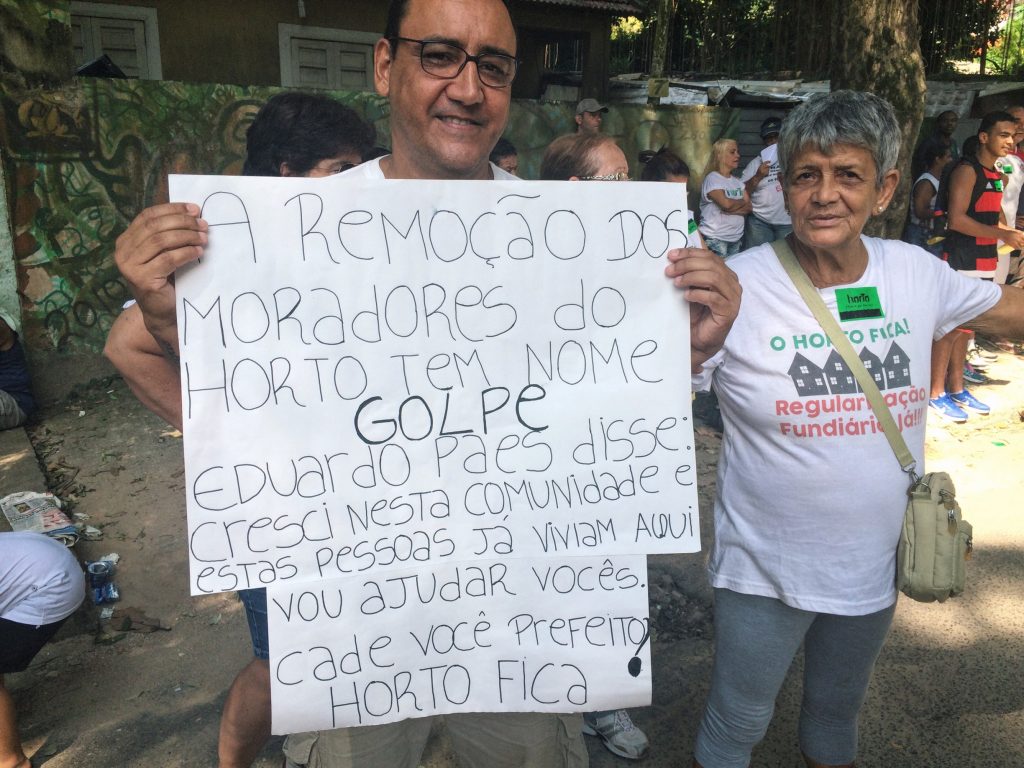 A REMOÇÃO DOS
MORADORES DO
HORTO TEM NOME
GOLPE
EDUARDO PAES DISSE:
CRESCI NESTA COMUNIDADE E
ESTAS PESSOAS JÁ VIVIAM AQUI
VOU AJUDAR VOCÊS.
CADE VOCÊ PREFEITO!
HORTO FICA
horto
O HORTO FICA!
Regularização
Fundiária Já!!!